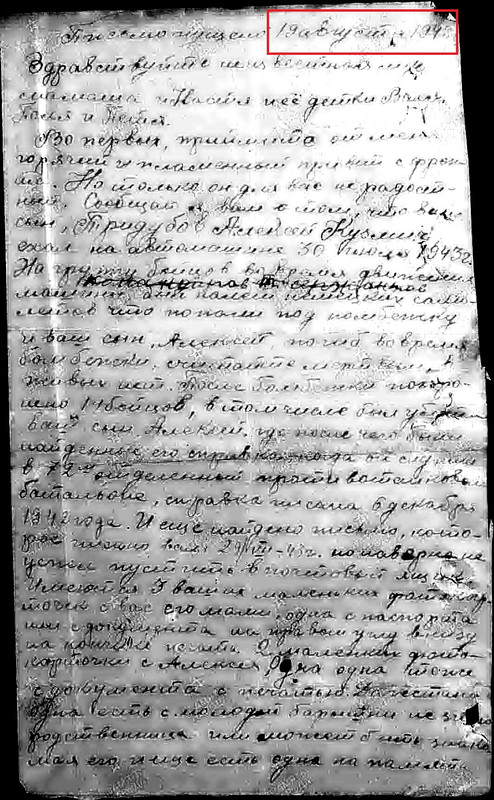 Письмо пущено 19 августа 194
Здравствуйте неизвестная мне
мамаша и Настя и её детки Валя,
Толя и Петя.
Во первых, примите от меня
горячий и пламенный привет с фрон-
та. Но только он для вас не радост-
ный. Сообщаю я вам о том, что ваш
сын, Тридубов Алексей Кузмич
ехал на автомашине 30 июля 1943г.
На группу бойцов во время движения
машины был налет немецких само-
летов что попали под бомбежку
и ваш сын, Алексей, погиб во время
бомбежки, считайте мертвым, в
живых нет. После бомбежки похоро-
нено 14 бойцов, в том числе был
ваш сын Алексей. где после чего были
найденные его справка когда он служил
в 72м отделенный противотанковом
батальоне, справка писана 6 декабря
1942 года. И еще найдено письмо, кото-
рое писано вам 29/VII-43г. но наверно не
успел пустить в почтовый ящик
Имеются 3 ваших маленьких фотокар-
точки с вас его мамы, одна с паспорта
или с документа на правом углу внизу
на кончике печать. 2 маленьких фото-
карточки с Алексея. Одна тоже
с документа с печатью.
одна есть с молодой барышни не
родственница или может быть знако-
мая его и еще есть одна на память